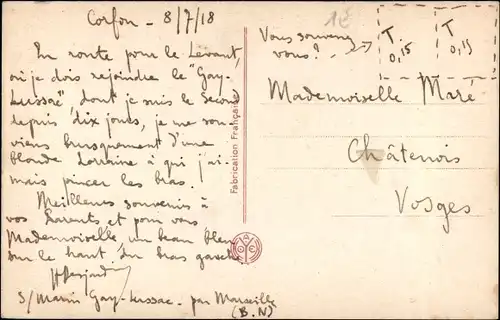 Corfou - 8/7/18
En route pour le Levant,
où je dois rejoindre le "Gay-
Lussac" dont je suis le Second
depuis dix jours, je me sou-
viens brusquement d'une
blonde Lorraine à qui j'ai-
mais pincer les bras.
Meilleurs souvenirs à
vos parents et pour vous
Mademoiselle, un beau bleu
sur le haut du bras gauche.
S/Marin Gay-Lussac - par Marseille
(B.N)
Fabrication Française
1€
Vous souvenez
vous? -
T.
0,15
T
0,15
Mademoiselle Maré
Châtenois
Vosges